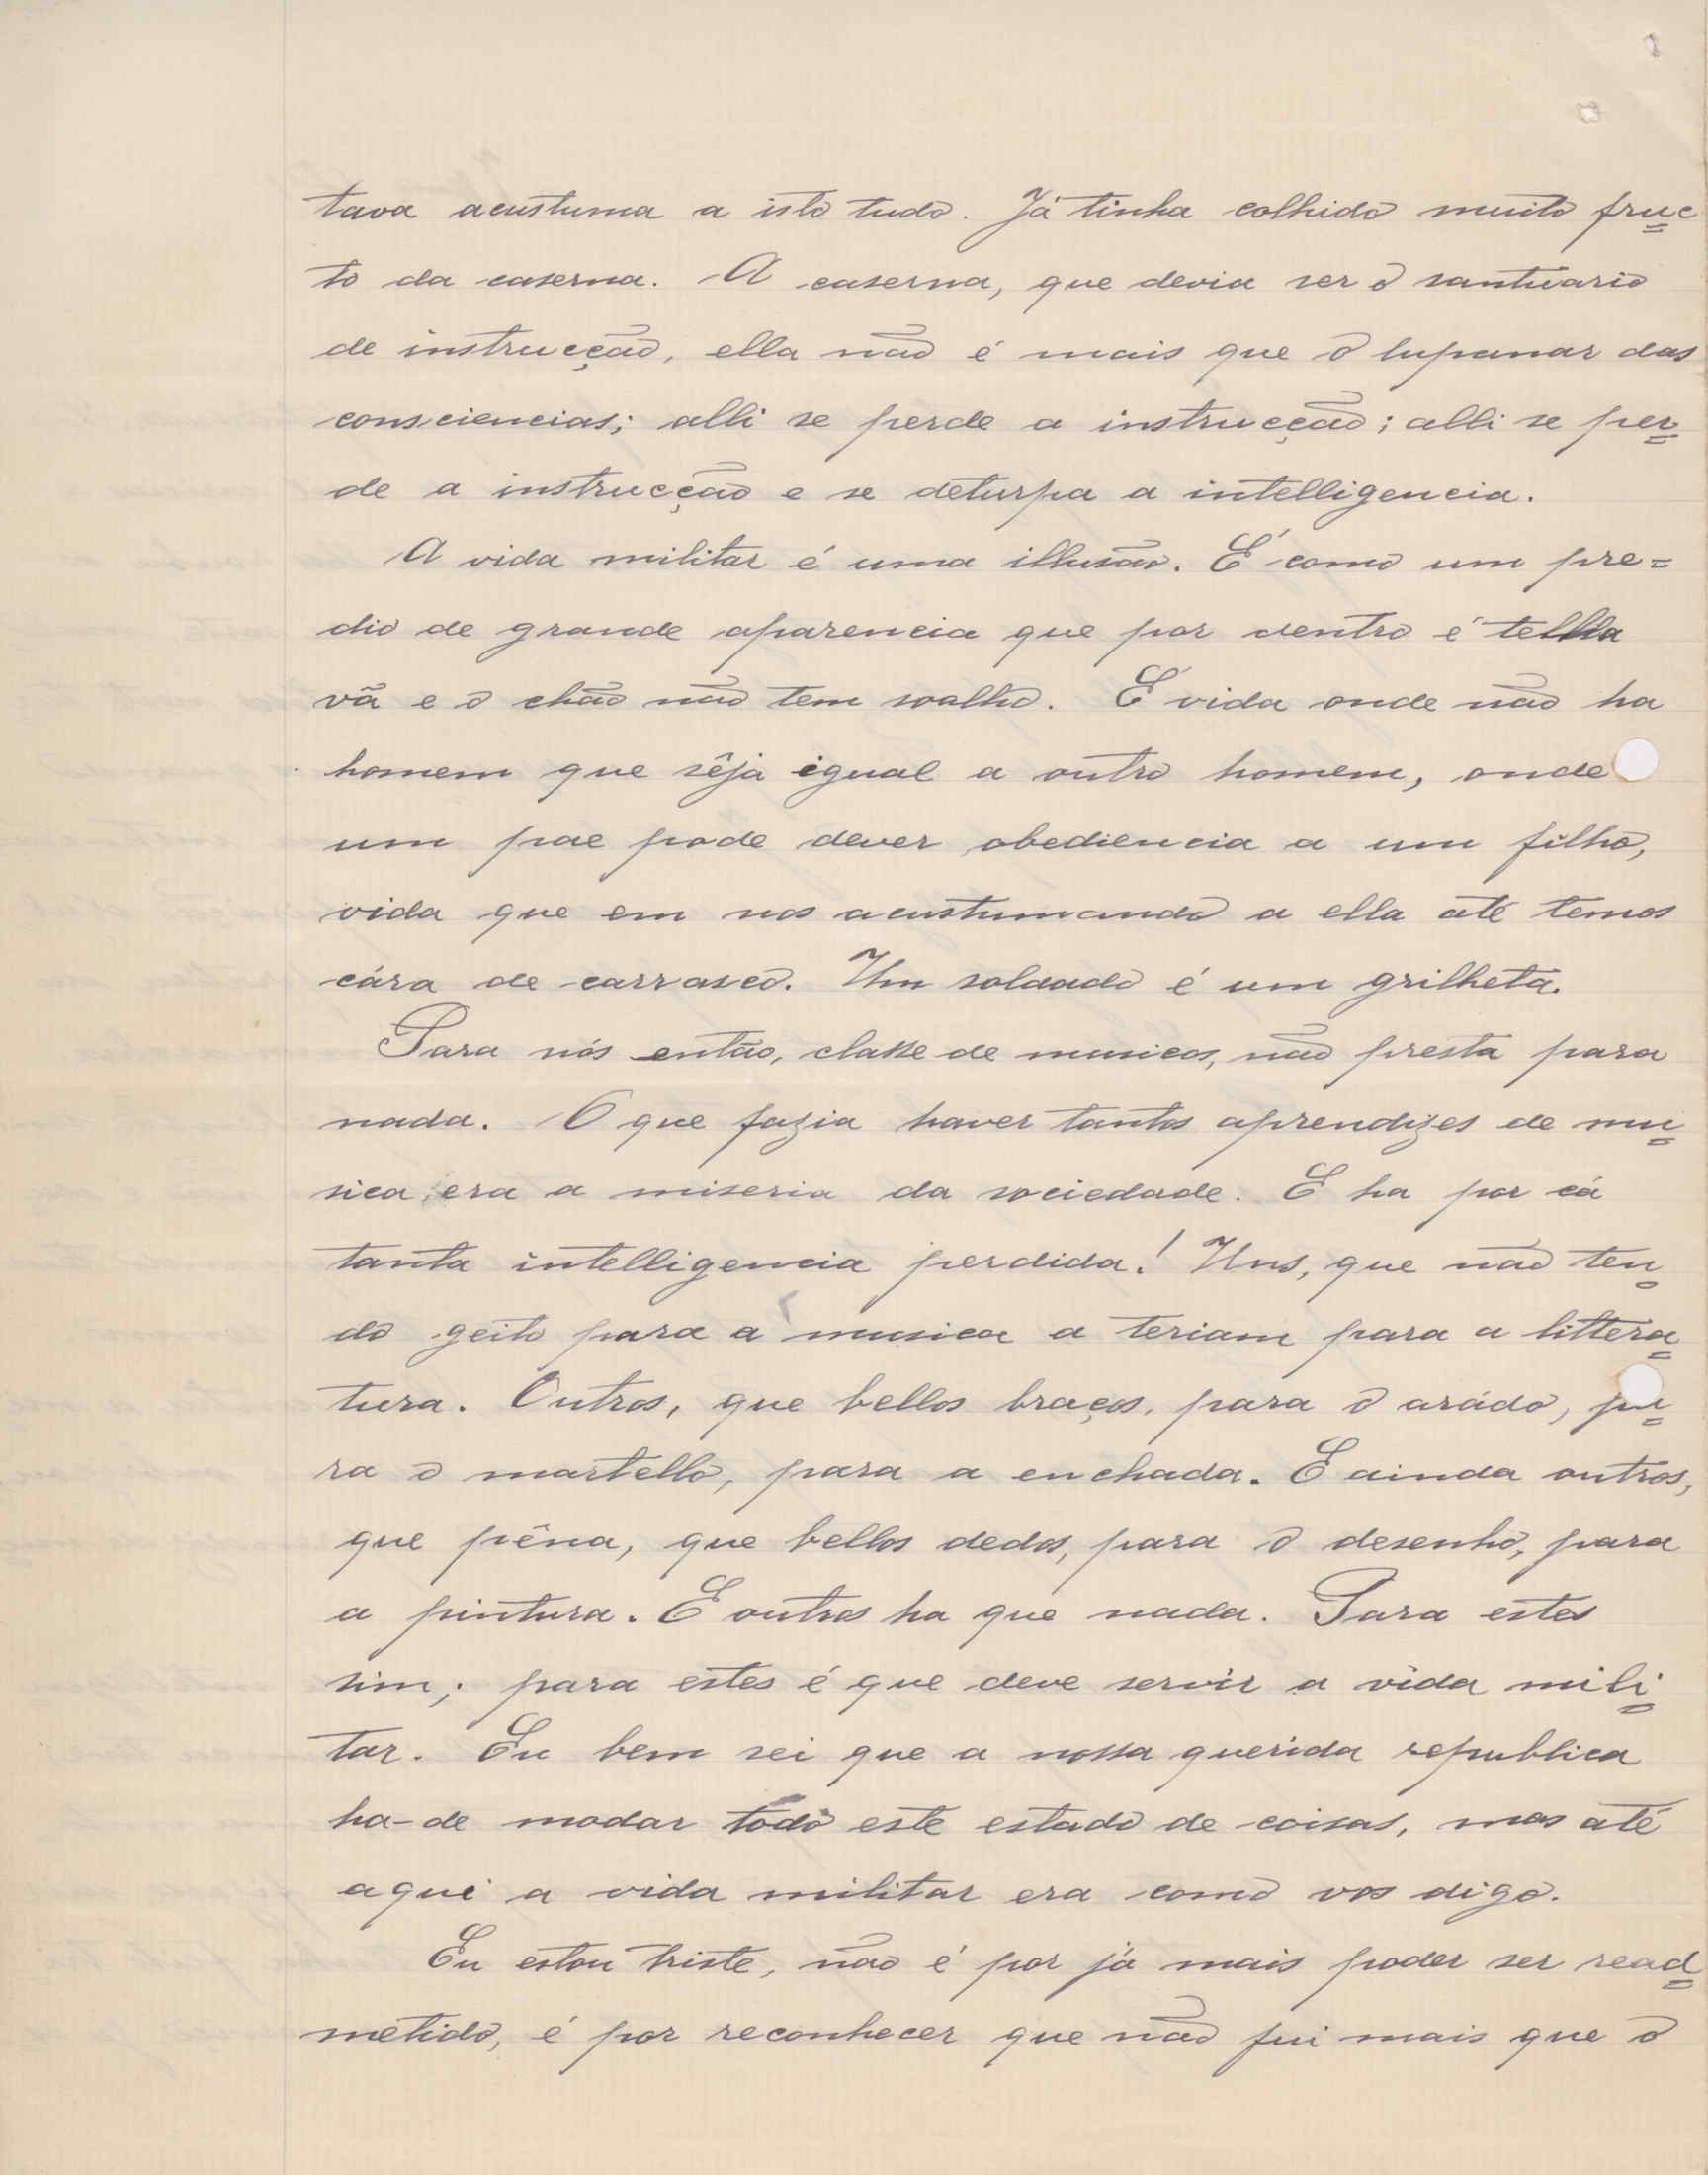 tava acustuma a isto tudo. Já tinha colhido muito fruc
to da caserna. A caserna, que devia ser o santuario
de instrucção, ella não é mais que o lupanar das
consciencias; alli se perde a instrucção; alli se per
de a instrucção e se deturpa a intelligencia.
A vida militar é uma illusão. É como um pre=
dio de grande aparencia que por dentro é telha
vã e o chão não tem soalho. É vida onde não ha
homem que sêja egual a outro homem, onde
um pae pode dever obediencia a um filho,
vida que em nos acustumando a ella até temos
cára de carrasco. Um soldado é um grilheta.
Para nós então, classe de musicos, não presta para
nada. O que fazia haver tantos aprendizes de mu
sica era a miseria da sociedade. E ha por cá
tanta intelligencia perdida! Uns, que não ten
do geito para a musica a teriam para a littera
tura. Outros, que bellos braços, para o arádo, pa
ra o martello, para a enchada. E ainda outros,
que pêna, que bellos dedos, para o desenho, para
a pintura. E outros ha que nada. Para estes
sim; para estes é que deve servir a vida mili
tar. Eu bem sei que a nossa querida republica
ha-de modar todo este estado de coisas, mas até
aqui a vida militar era como vos digo.
Eu estou triste, não é por já mais poder ser read
metido, é por reconhecer que não fui mais que o